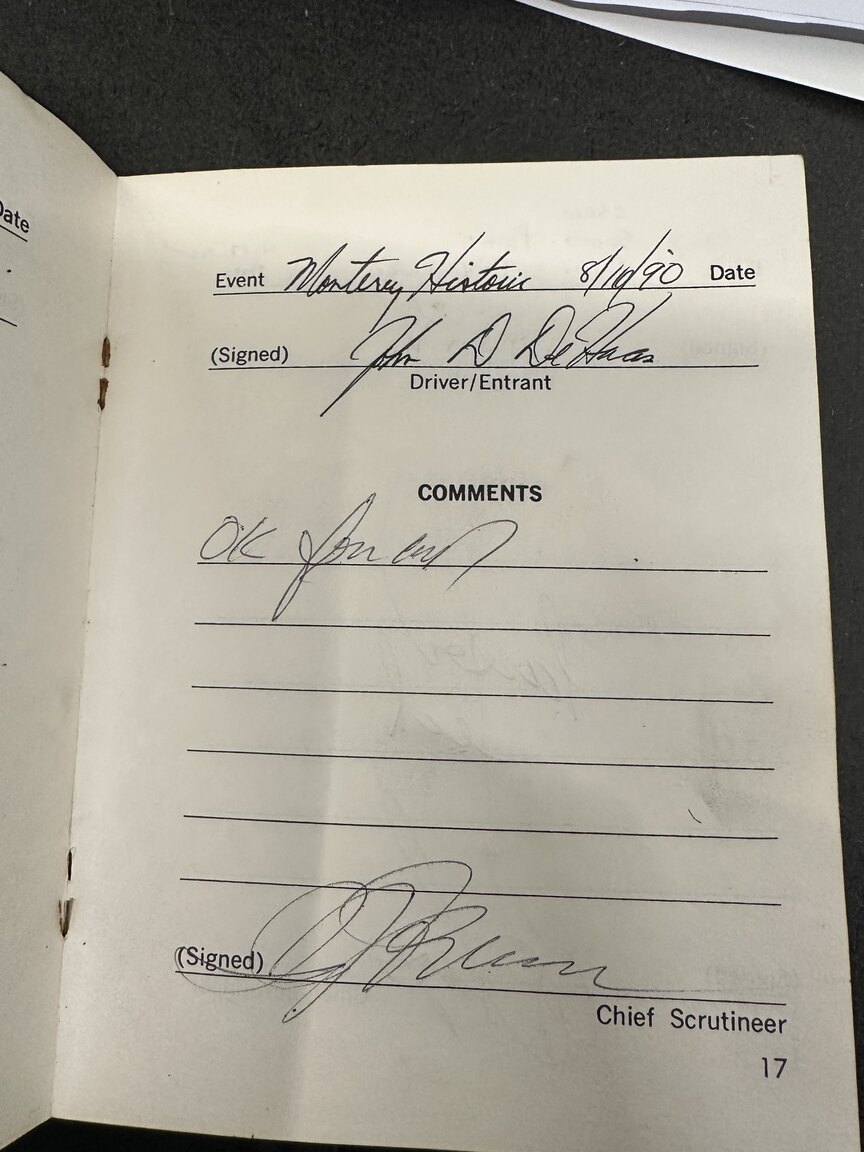 Date
Event Monterey Historic 8/10/90 Date
(Signed) John D DeHaas
Driver/Entrant
COMMENTS
OK
(Signed)
Chief Scrutineer
17